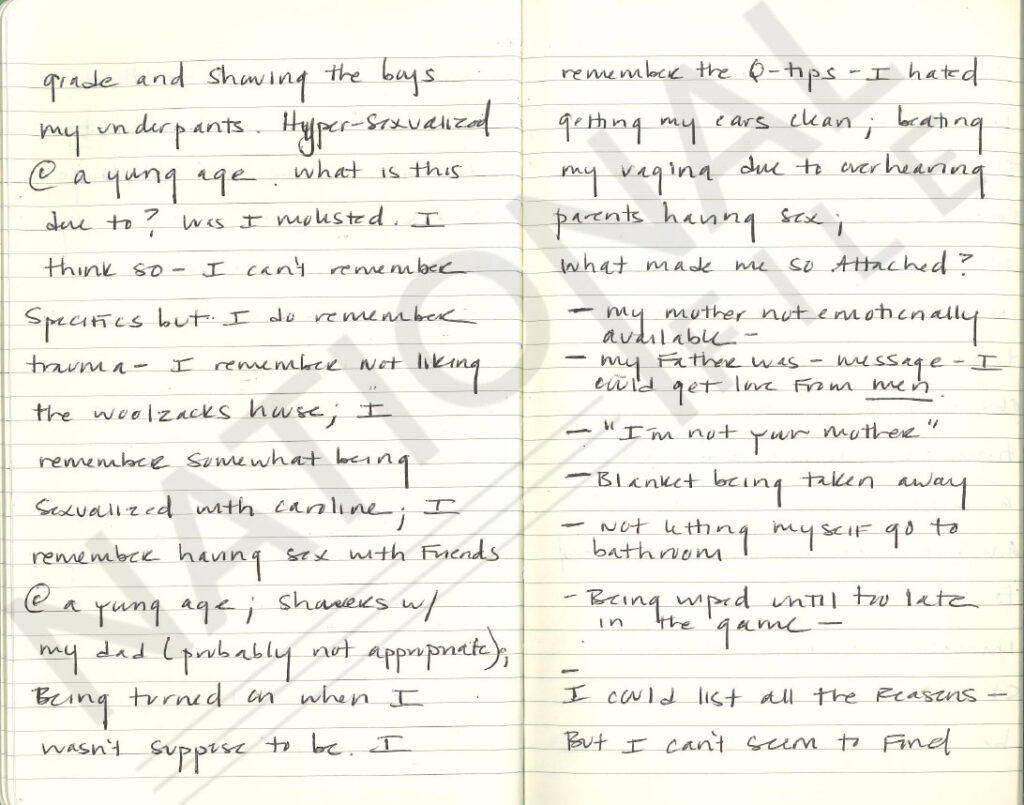 grade and showing the boys
my underpants. Hyper-sexualized
@ a yung age. what is this
due to? Was I molested. I
think so - I can't remember
specifics but I do remember
trauma - I remember not liking
the woolzacks house; I
remember somewhat being
sexualized with caroline; I
remember having sex with Friends
@ a yung age; showers w/
my dad (probably not appropriate);
Being turned on when I
wasn't suppose to be. I
remember the Q-tips - I hated
getting my ears clean; beating
my vagina due to overhearing
parents having sex;
What made me so Attached?
- my mother not emotionally
available -
- my Father was - message - I
could get love From men.
- "I'm not your mother"
- Blanket being taken away
- Not letting myself go to
bathroom
- Being wiped until too late
in the game -
-
I could list all the Reasons -
But I can't seem to Find
NATIONAL
FILE